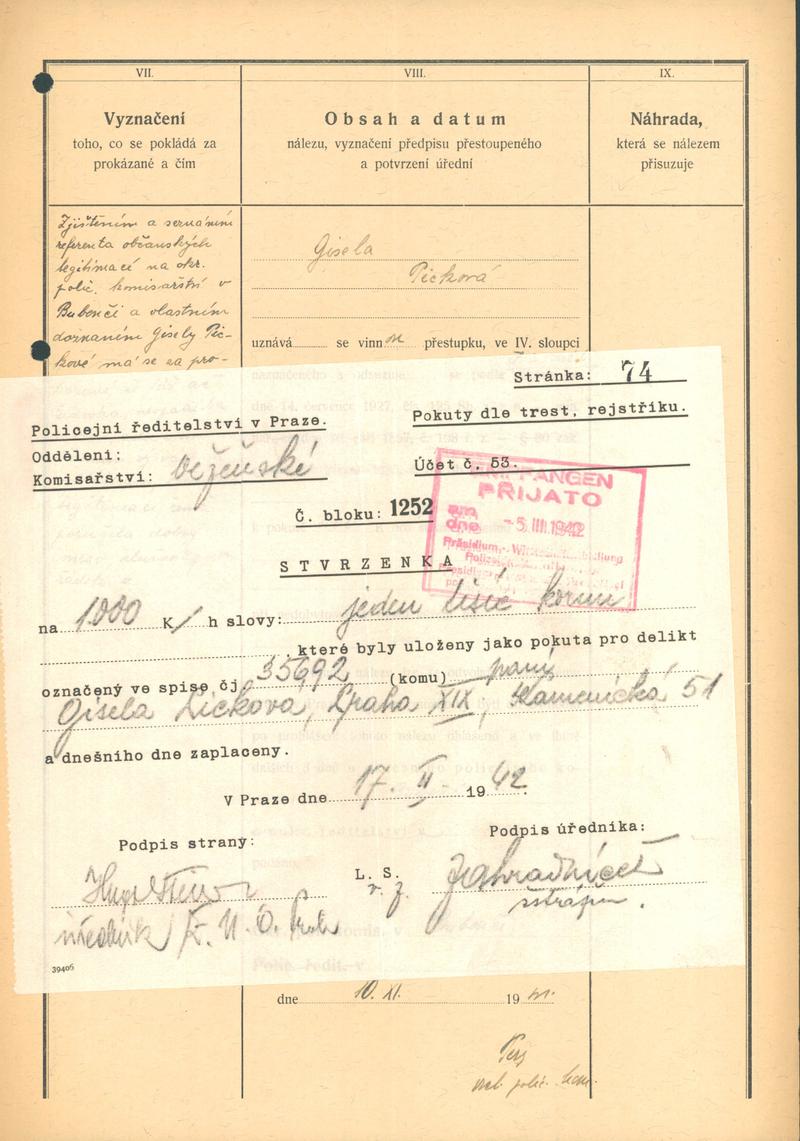 VII.
VIII.
IX.
Vyznačení
toho, co se pokládá za
prokázané a čím
Obsah a datum
nálezu, vyznačení předpisu přestoupeného
a potvrzení úřední
Náhrada,
která se nálezem
přisuzuje
Zjištěním a seznáním
referenta občanských
legitimací na okr.
polic. komisařství v
Bubenči a vlastním
doznáním Gisely Pic-
kové má se za pro-
Gisela
Picková
uznává se vinn ou přestupku, ve IV. sloupci
Stránka: 74
Policejní ředitelství v Praze.
Oddělení:
Komisařství: vězeňské
Pokuty dle trest, rejstříku.
Účet č. 53.
EMPFANGEN
PŘIJATO
am
dne -5. III. 1942
Č. bloku: 1252
STVRZENKA
na 1.000 K h slovy: jeden tisíc korun
, které byly uloženy jako pokuta pro delikt
označený ve spise čj 35692 (komu) paní
Gisela Picková, Praha XIX, Kamenická 51
a dnešního dne zaplaceny.
V Praze dne 17. II. 1942.
Podpis strany:
Podpis úředníka:
L. S.
39406
dne 10. XI. 19